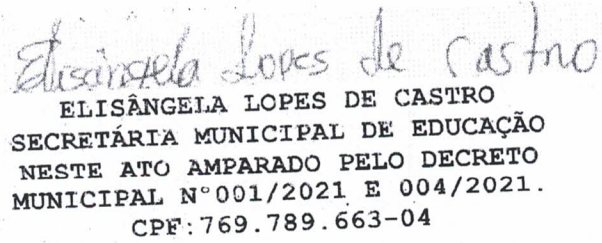 Elisângela Lopes de Castro
ELISÂNGELA LOPES DE CASTRO
SECRETÁRIA MUNICIPAL DE EDUCAÇÃO
NESTE ATO AMPARADO PELO DECRETO
MUNICIPAL N°001/2021 E 004/2021.
CPF:769.789.663-04